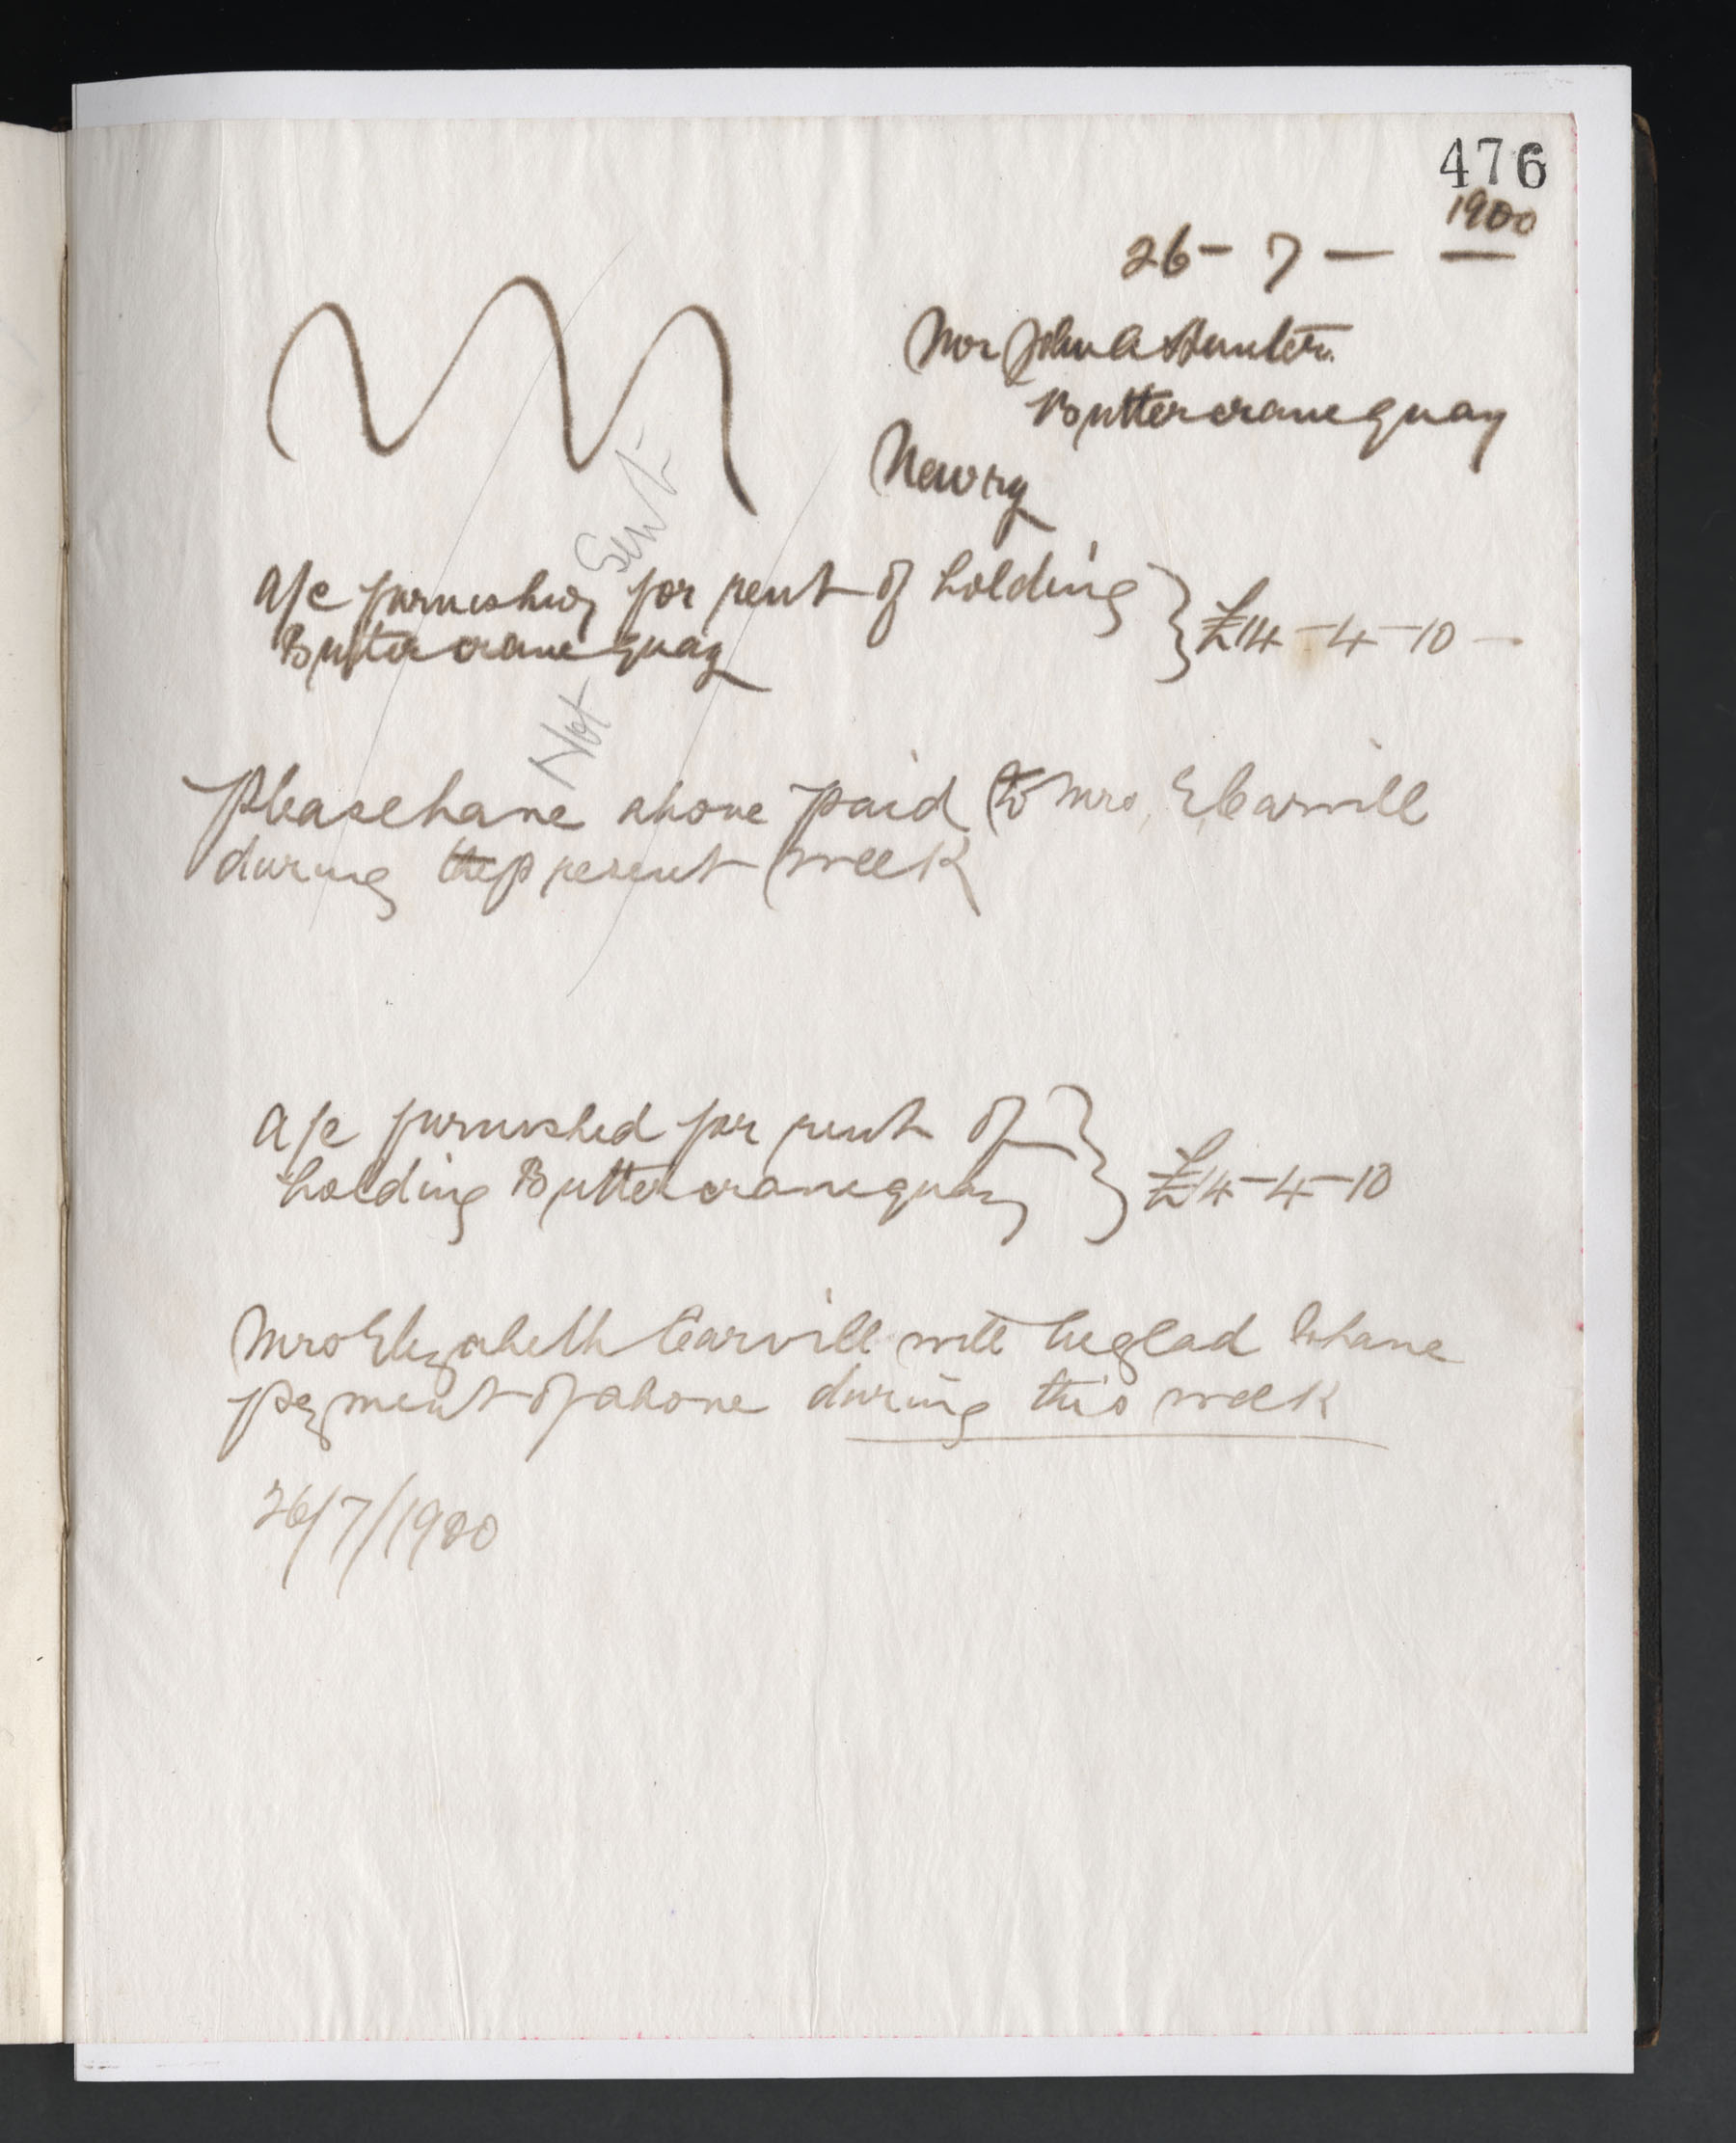 476
1900
26 - 7 -
Mr John A Hunter
Buttercrane quay
Newry
Not Sent
A/c furnishing for rent of holding
Buttercrane quay
£14 - 4 - 10 -
Please have above paid to Mrs, E Carvill
during the present week
A/c furnished for rent of
holding Buttercrane quay
£14 - 4 - 10
Mrs Elizabeth Carvill will be glad to have
payment of above during this week
26/7/1900